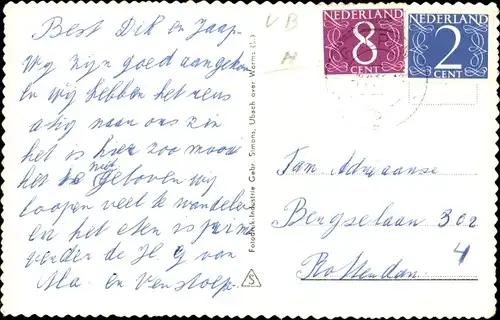 V B
NEDERLAND
8
CENT
NEDERLAND
2
CENT
Best Dik en Jaap
Wy zijn goed aangekom
en wij hebben het reus
atig naar ons zin
het is hier zoo mooi
het is niet te geloven wij
loopen veel te wandelen
en het eten is prima
verder de H. G van
Ma en Verstoep
Fotodruk-Industrie Gebr. Simons, Ubach over Worms (L.)
S
Jan Adriaanse
Bergselaan 302
Rotterdam 4